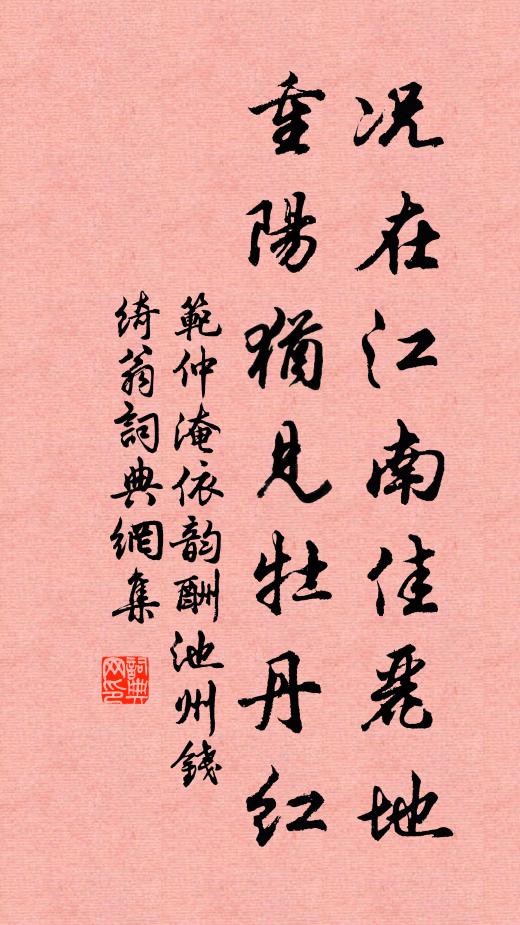 况在江南佳麗地
重陽猶見牡丹紅
範仲淹依韵酬池州錢
綺翁詞典網集
詞典网印